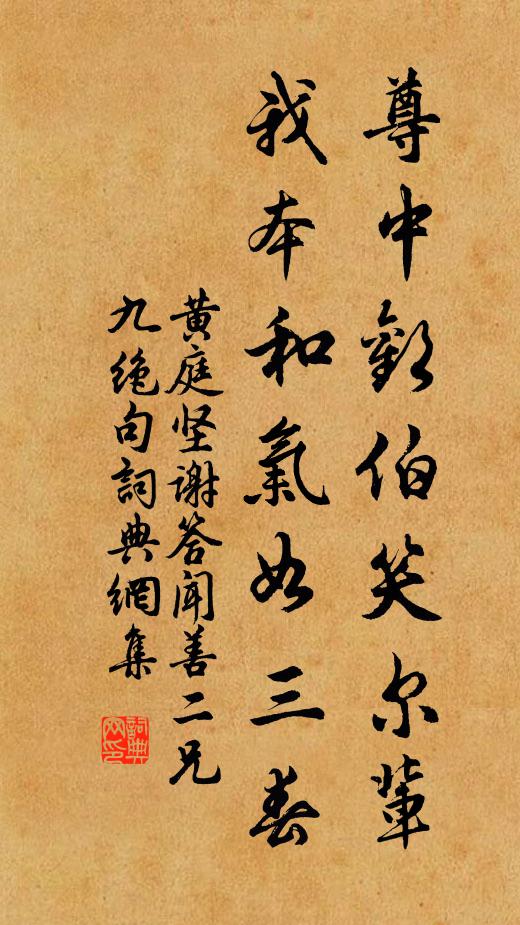 尊中歡伯笑尔輩
我本和氣如三春
黄庭坚谢答闻善二兄
九绝句詞典網集
詞典网印